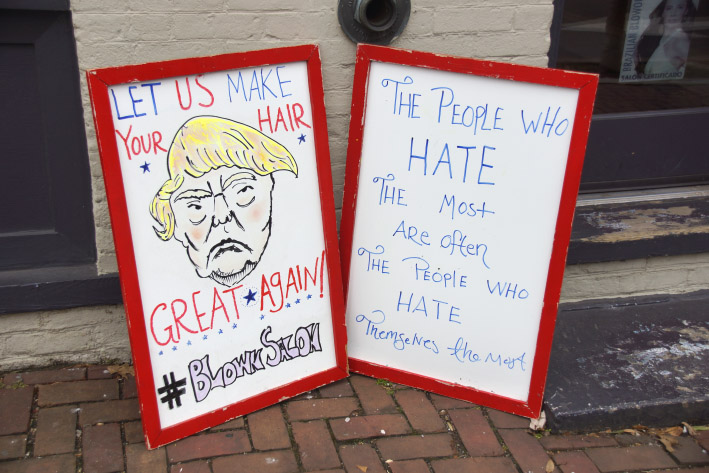 LET US MAKE
YOUR HAIR
GREAT AGAIN!
#BLOWN SALON
THE PEOPLE WHO
HATE
THE MOST
ARE OFTEN
THE PEOPLE WHO
HATE
THEMSELVES THE MOST